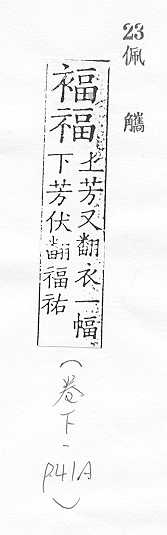 23
佩觿
褔福
上芳又翻衣一幅
下芳伏翻福祐
(卷下-
P41A)